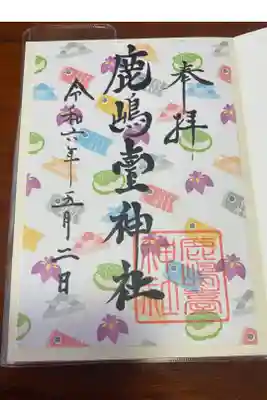 奉拝
鹿嶋臺神社
令和六年 五月二日
鹿嶋臺
神社